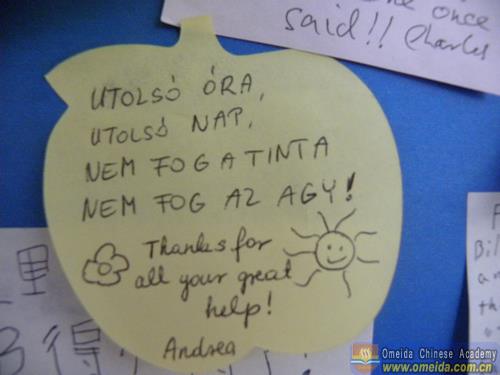 once
said!! Charles
UTOLSÓ ÓRA,
UTOLSÓ NAP,
NEM FOG A TINTA
NEM FOG AZ AGY!
Thanks for
all your great
help!
Andrea
里
得
Bil
a
th
Omeida Chinese Academy
www.omeida.com.cn